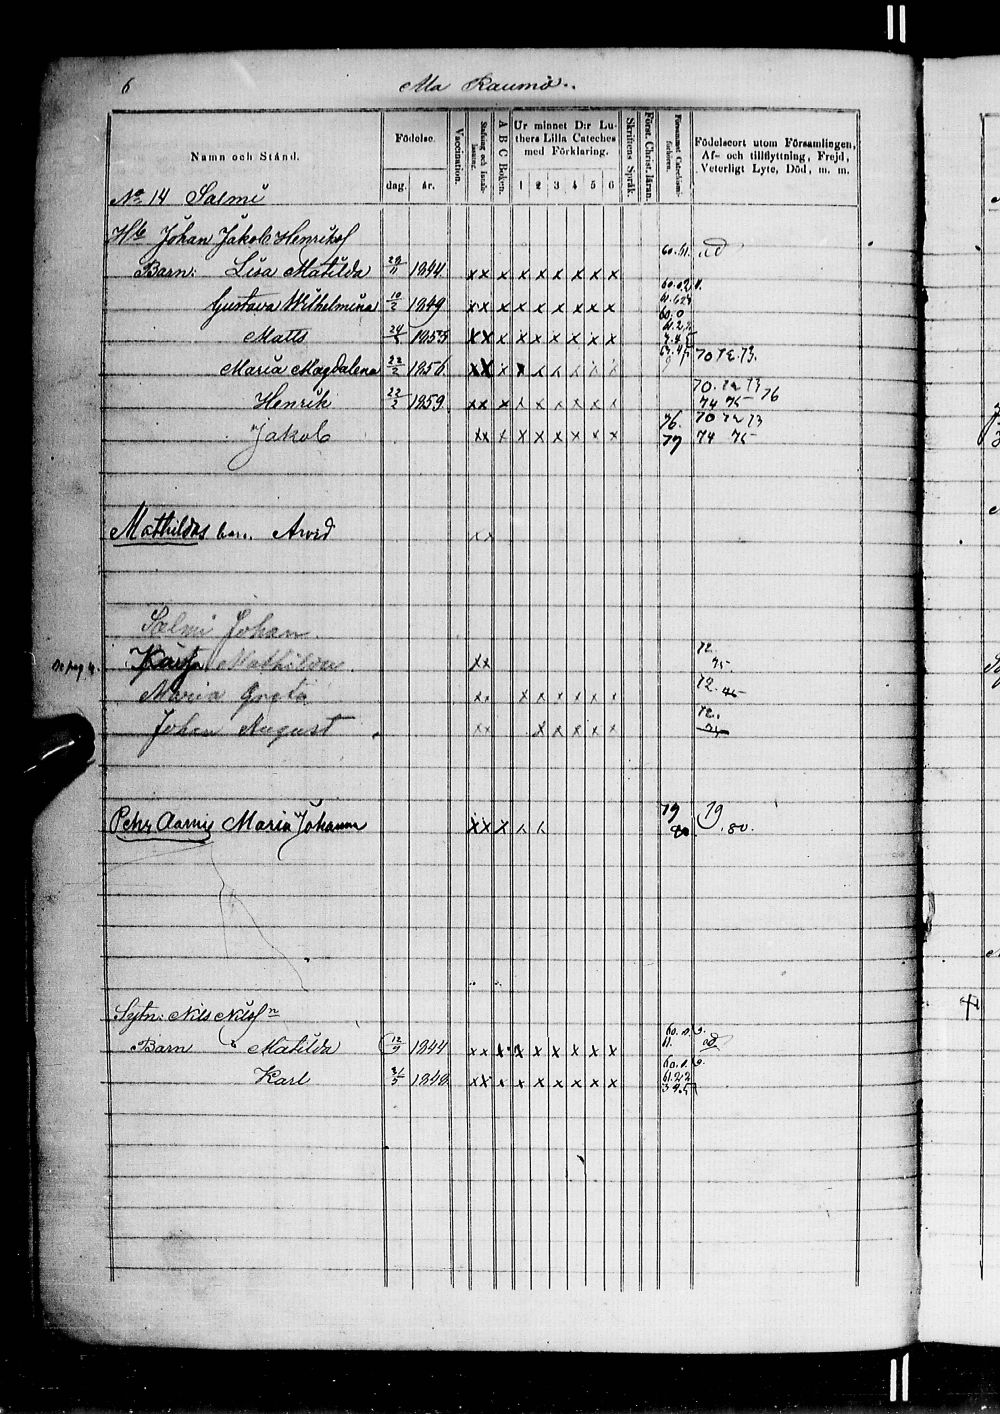 6
Ala Raumo.
Namn och Stånd.
Födelse.
dag. år.
Vaccination.
Stafning och Innanläsning.
A B C Boken.
Ur minnet D:r Luthers Lilla Cateches med Förklaring.
1 2 3 4 5 6
Skriftens Språk.
Först. Christ. läran.
Födelseort utom Församlingen, Af- och tillflyttning, Frejd, Veterligt Lyte, Död, m. m.
No 14 Salmi
Johan Jakob Henriks
Barn: Lisa Matilda 1844 x x x x x x x x x 60.61.
Gustava Wilhelmina 10/2 1849 x x x x x x x x x
Matts 1853 x x x x x x x x x
Maria Magdalena 22/2 1856 x x x x x x x x x 70 72. 73.
Henrik 22/2 1859 x x x x x x x x x 70. 72 73 74 75 76
Jakob x x x x x x x x x 76. 79 70 72 73 74 75
Mathildas barn Arvid x x
Salmi Johan
Kaisa Mathilda x x 72. 75
Maria Greta x x x x x x x x 72. 75
Johan August x x x x x x x 72.
Petr Aarnis Maria Johanna x x x x x 79 80 79 .80.
Sytn: Nils Nilsson
Barn Matilda 12/9 1844 x x x x x x x x x 60. 61.
Karl 31/5 1848 x x x x x x x x x